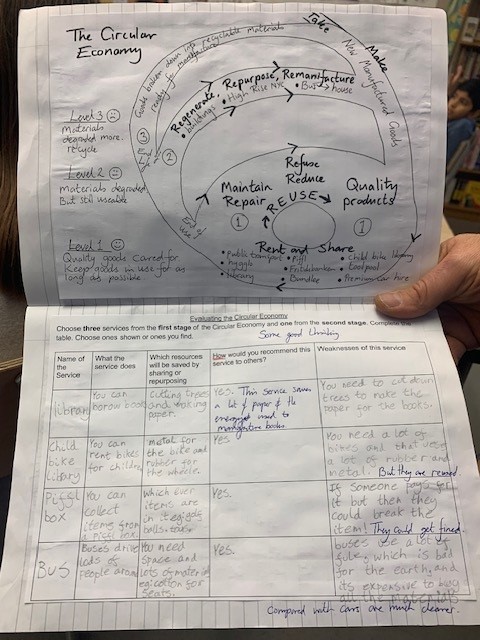 The Circular
Economy
Take
Make
New Manufactured Goods
Goods broken down into recyclable materials
ready for manufacture
Regenerate, Repurpose, Remanufacture
• buildings
• High Rise NYC
• Bus → house
Level 3
Materials
degraded more.
recycle
③
②
Level 2
Materials degraded
But still useable
Refuse
Reduce
Maintain
Repair
REUSE
Quality
products
①
①
Level 1
Quality goods Cared for
Keep goods in use for as
long as possible
Rent and Share
• public transport
• library
• Child bike library
• toolpool
Evaluating the Circular Economy
Choose three services from the first stage of the Circular Economy and one from the second stage. Complete the
table. Choose ones shown or ones you find.
Some good thinking
Name of
the
Service
What the
service does
Which resources
will be saved by
sharing or
repurposing
How would you recommend this
service to others?
Weaknesses of this service
library
You can
borow books
cutting trees
and making
paper.
Yes. This service saves
a lot of paper & the
energy used to
manufacture books
You need to cut down
trees to make the
paper for the books.
Child
bike
library
You can
rent bikes
for children
metal for
the bike and
rubber for
the wheels.
Yes.
You need a lot of
bikes and that uses
a lot of rubber and
metal. But they are reused.
box
You can
collect
items from
a box.
Which ever
items are
in it
Yes.
If someone pays for
it bot then they
could break the
item! They could get fined.
BUS
Buses drive
lods of
people around
You need
space and
lots of
for
seats.
Yes.
buses use a lot of
which is bad
for the earth, and
its expensive to buy
all the materials
Compared with cars are much cleaner.